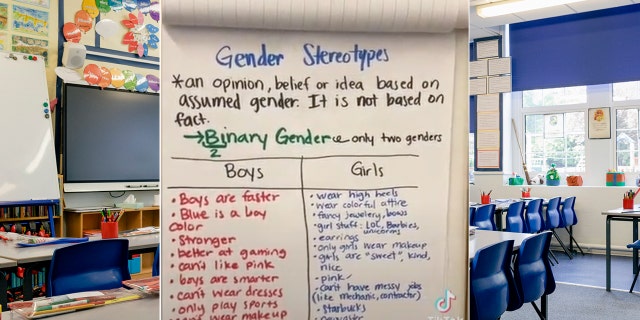 Gender Stereotypes
*an opinion, belief or idea based on
assumed gender. It is not based on
fact.
→Binary Gender ← only two genders
2
Boys
Girls
• Boys are faster
• Blue is a boy
color
• Stronger
• better at gaming
• can't like pink
• boys are smarter
• can't wear dresses
• only play sports
• can't wear makeup
• wear high heels
• wear colorful attire
• fancy jewelery, bows
• girl stuff: LOL, Barbies,
unicorns
• earrings
• only girls wear makeup
• girls are "sweet", kind,
nice
• pink
• can't have messy jobs
(like mechanic, contractor)
• Starbucks
TikTok